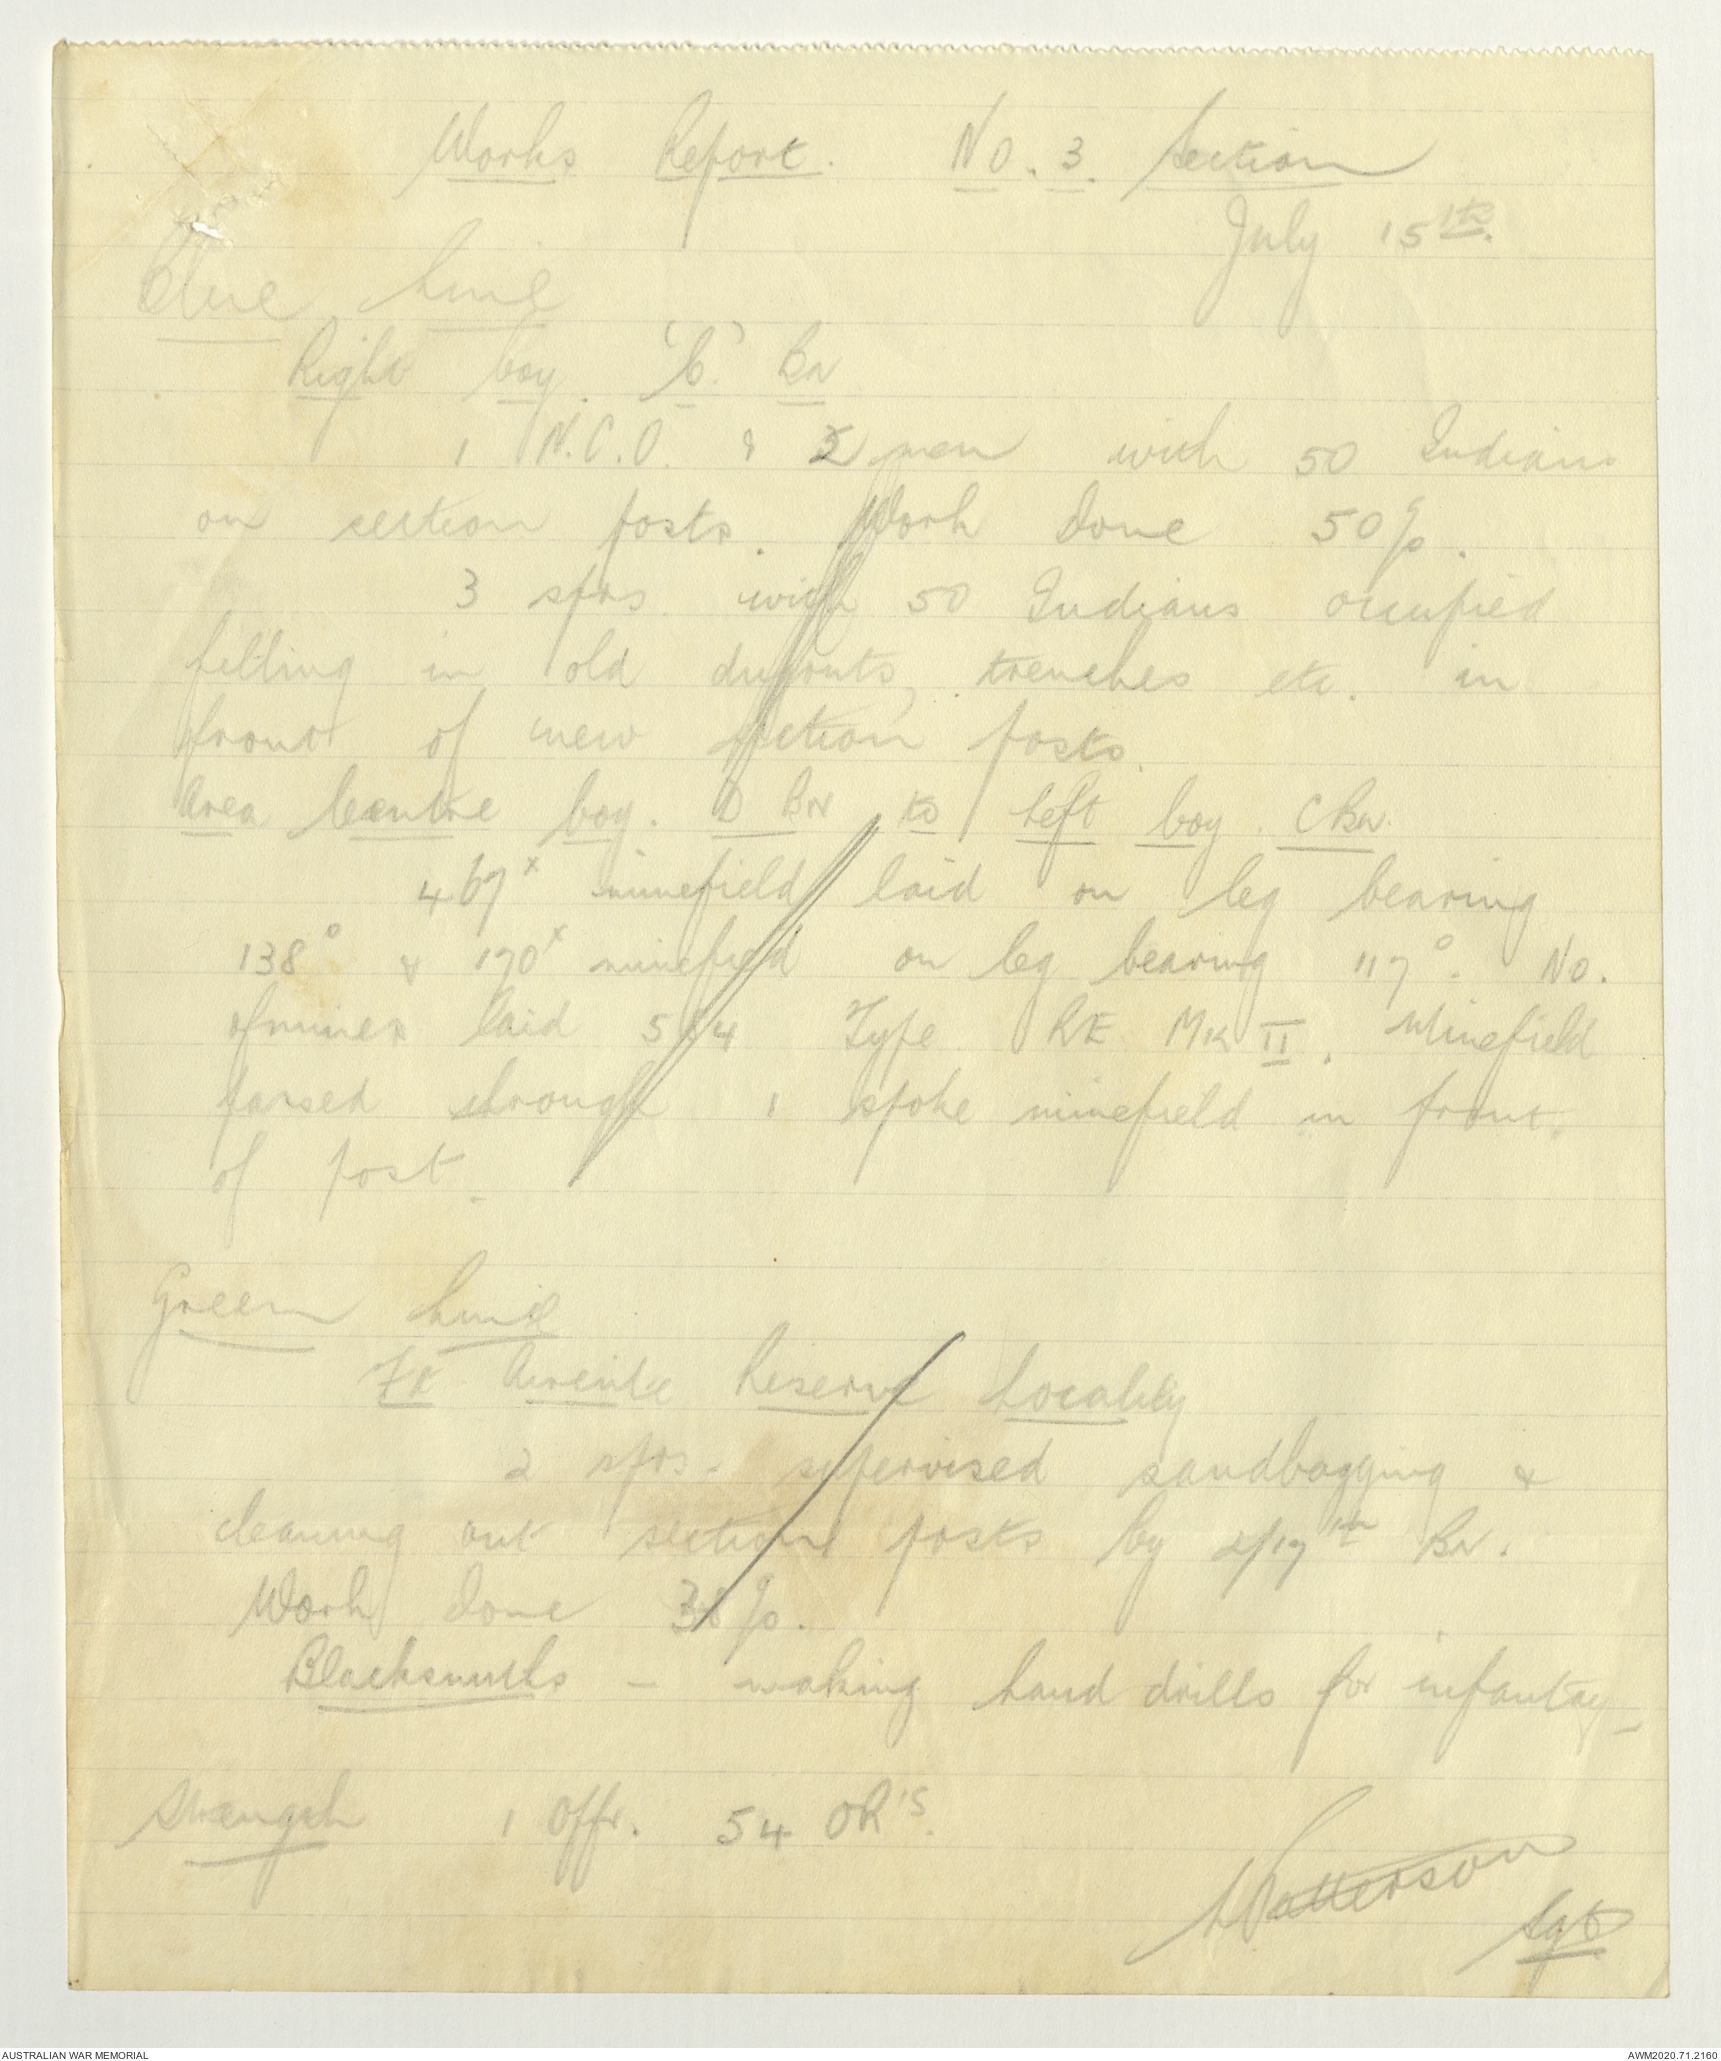 Works Report. No. 3. Section
July 15th.
Blue Line
Right Coy. 'C' Bn
1 N.C.O. & 2 men with 50 Indians
on section posts. Work done 50%.
3 sprs with 50 Indians occupied
filling in old dugouts, trenches etc. in
front of new section posts.
Area Centre Coy. D Bn to Left Coy. C Bn.
467x minefield laid on leg bearing
138° & 170x minefield on leg bearing 117°. No.
of mines laid 524 Type RE Mk II. Minefield
passed through 1 spoke minefield in front.
of post.
Green Line
Ft Airente Reserve Locality
2 sprs - supervised sandbagging &
cleaning out section posts by 2/17th Bn.
Work done %.
Blacksmiths - making hand drills for infantry
Strength 1 Offr. 54 OR's.
L Patterson
Sgt
AUSTRALIAN WAR MEMORIAL
AWM2020.71.2160